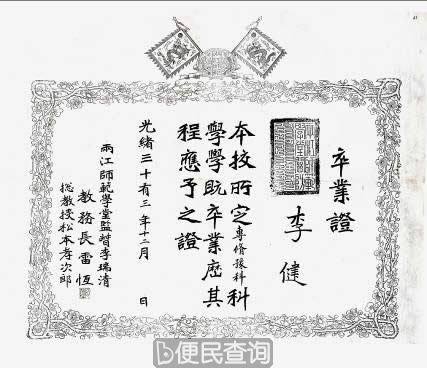 卒業證
李健
本挍所定專脩豫科科
學學既卒業歷其
程應予之證
光緒三十有三年十二月 日
兩江師範學堂監督李瑞清
教務長雷恆
総教授松本孝次郎
便民查询